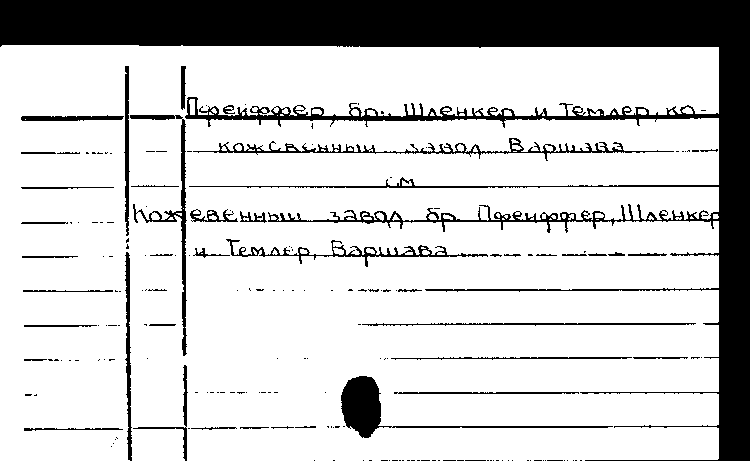 Пфейффер, бр., Шленкер и Темлер, ко-
кожевенный завод Варшава
см
Кожевенный завод бр. Пфейффер, Шленкер
и Темлер, Варшава